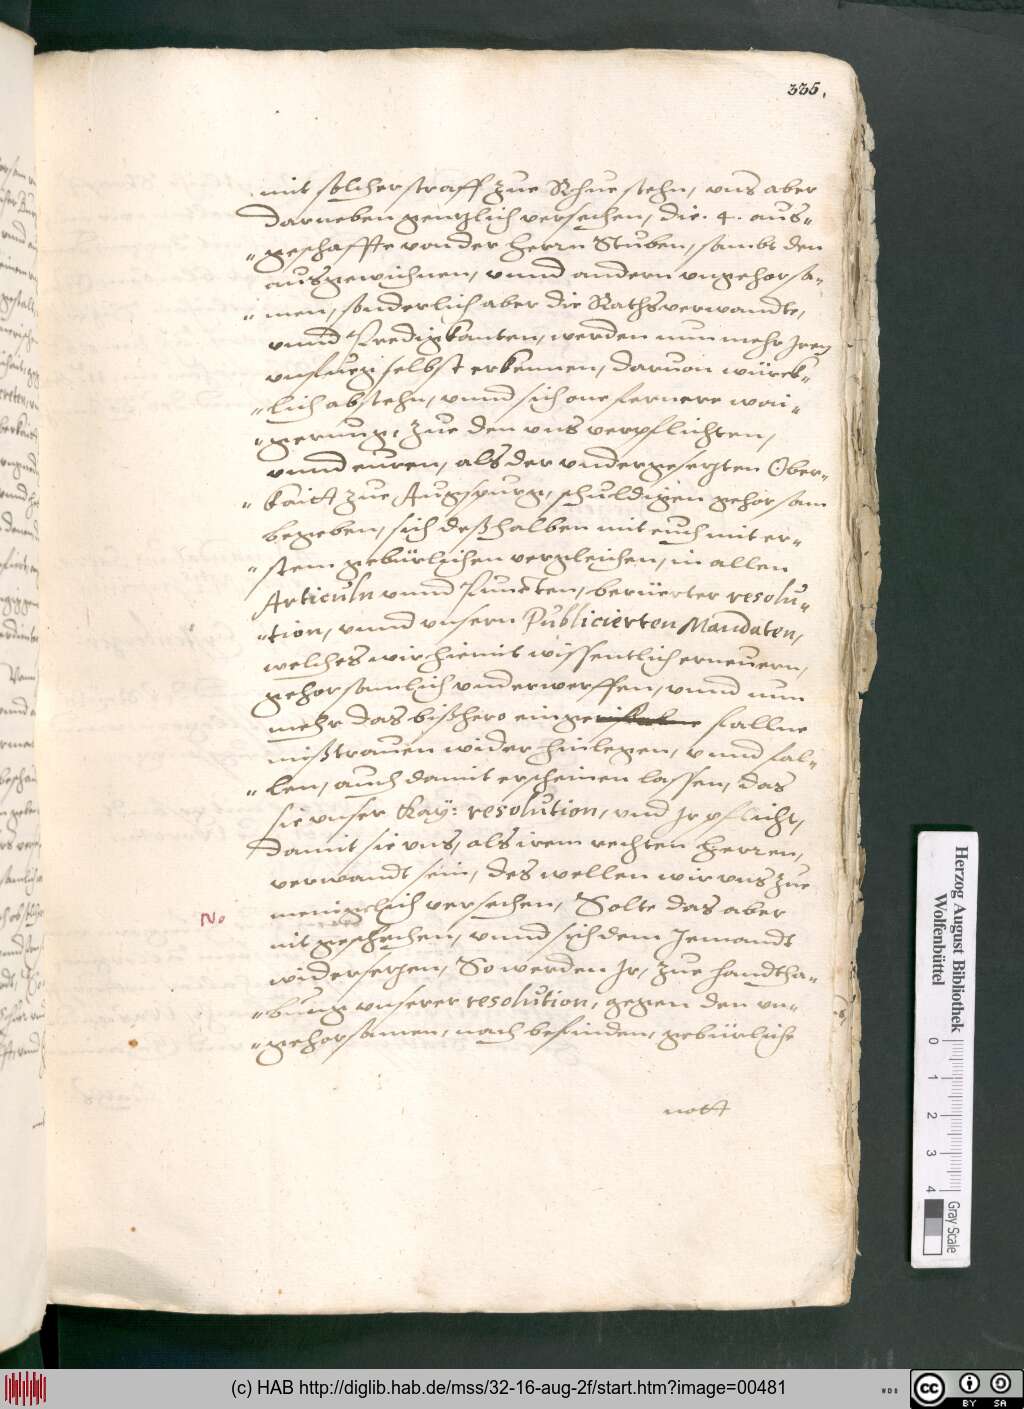 335.
mit solcher straff zue Rhue stehn, vns aber
darneben gentzlich versechen, die. 4. aus„
„geschaffte von der Herrn Stuben, sambt den
ausgewichnen, vnnd andern vngehorsa„
„men, sonderlich aber die Rathsverwandte,
vnnd Predigkanten, werden nun mehr Jren
vnfueg selbst erkennen, daruon würck„
„lich abstehn, vnnd sich one fernere wai„
„gerung, zue den vns verpflichten,
vnnd euren, als der vndergesetzten Ober„
„kaitt zue Augspurg, schuldigen gehorsam
begeben, sich deßhalben mit euch mit er„
„stem gebürlichen vergleichen, in allen
Articuln vnnd Puncten, berüerter resolu„
„tion, vnnd vnsern Publicierten Mandaten,
welches wir hiemit wissentlich erneuern,
gehorsamlich vnderwerffen, vnnd nun
mehr das bißhero einge fallne
mißtrauen wider hinlegen, vnnd fal„
„len, auch damit erscheinen lassen, das
sie vnser Kay: resolution, vnd Jr pflicht,
damit sie vns, als irem rechten Herren,
verwandt sein, des wellen wir vns zue
menigelich versechen, Solte das aber
nit geschechen, vnnd sich dem Jemandt
widersetzen, So werden Jr, zue handtha„
„bung vnserer resolution, gegen den vn„
„gehorsamen, nach befinden, gebürliche
nott
No
Herzog August Bibliothek
Wolfenbüttel
0 1 2 3 4
Gray Scale
(c) HAB http://diglib.hab.de/mss/32-16-aug-2f/start.htm?image=00481
WDB
cc BY SA